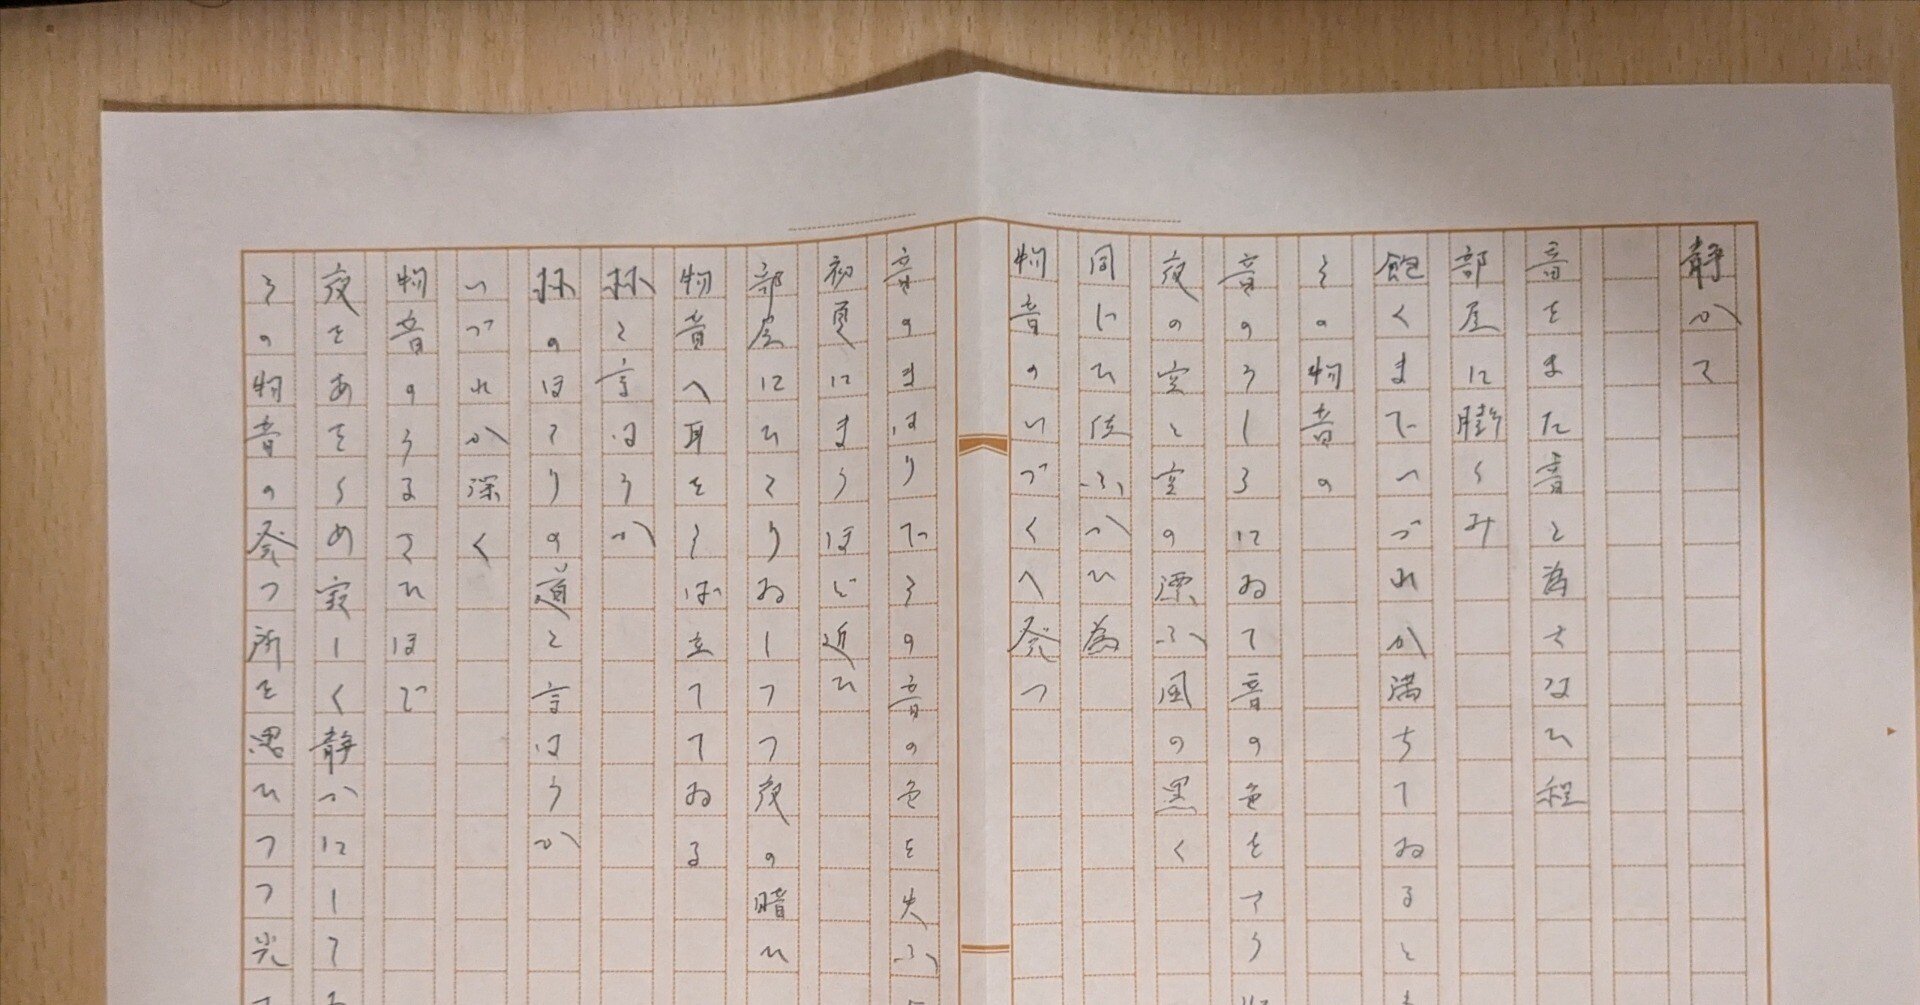 静かて
音をまた音と為せない程
部屋に膨らみ
飽くまでいづれか満ちてゐると
その物音の
音のうしろにゐて音の色をてう
夜の空と空の漂ふ風の黒く
間にひ伝ふかひ為
物音のいづくへ発つ
音のまはりでその音の色を失ふ
初夏にまうほど近ひ
部屋にひとりゐしつつ夜の暗い
物音へ耳をらば立ててゐる
林と言はうか
林のほとりの道と言はうか
いづれか深く
物音のうるさひほど
夜をあをらめ寂しく静かにして
その物音の発つ所を思ひつつ光